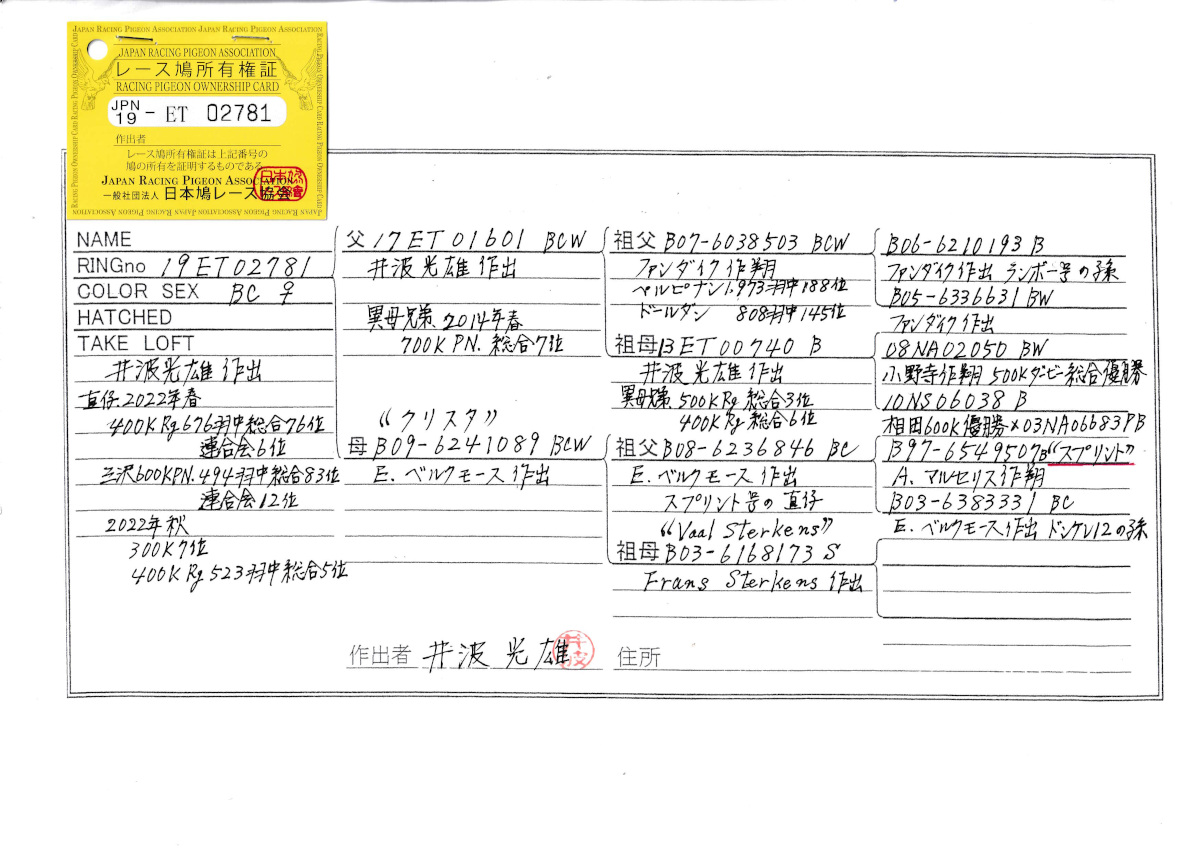 JAPAN RACING PIGEON ASSOCIATION JAPAN RACING PIGEON ASSOCIATION
JAPAN RACING PIGEON ASSOCIATION
レース鳩所有権証
RACING PIGEON OWNERSHIP CARD
JPN 19 - ET 02781
作出者
レース鳩所有権証は上記番号の
鳩の所有を証明するものである。
JAPAN RACING PIGEON ASSOCIATION
一般社団法人 日本鳩レース協会
NAME
RINGno 19ET02781
COLOR SEX BC ♀
HATCHED
TAKE LOFT
井波光雄作出
直仔.2022年春
400K Rg 676羽中総合76位
連合会6位
三沢600KPN.494羽中総合83位
連合会12位
2022年秋
300K7位
400K Rg 523羽中総合5位
父 17ET01601 BCW
井波光雄作出
異母兄弟.2014年春
700K PN.総合7位
“クリスタ”
母 B09-6241089 BCW
E.ベルクモース作出
祖父 B07-6038503 BCW
ファンダイク作翔
ペルピナン1.973羽中188位
ドールダン 808羽中145位
祖母 13ET00740 B
井波光雄作出
異母兄弟.500K Rg 総合3位
400K Rg 総合6位
祖父 B08-6236846 BC
E.ベルクモース作出
スプリント号の直仔
“Vaal Sterkens”
祖母 B03-6168173 S
Frans Sterkens 作出
B06-6210193 B
ファンダイク作出 ランボー号の孫
B05-6336631 BW
ファンダイク作出
08NA02050 BW
小野寺作翔 500Kダービー総合優勝
10NS06038 B
相田600K優勝×03NA06683PB
B97-6549507B“スプリント”
A.マルセリス作翔
B03-6383331 BC
E.ベルクモース作出 ドンケレ12の孫
作出者 井波光雄
住所